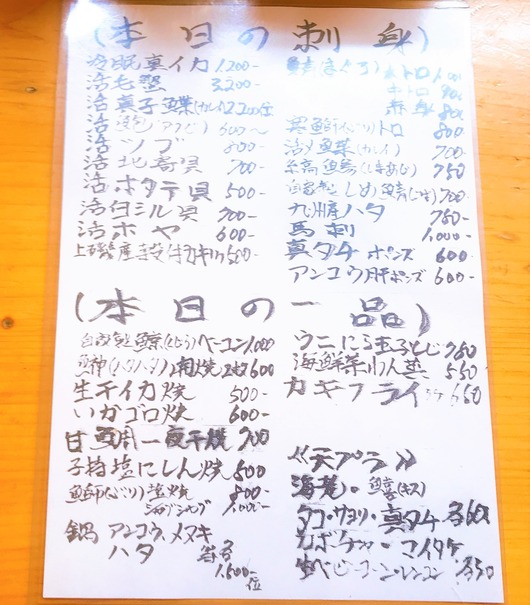 (本日の刺身)
活 眼真イカ 1,200-
活 毛蟹 3,200-
活 真子鰈(カレイ) 2,200位
活 鮑(アワビ) 600〜
活 ツブ 800-
活 北寄貝 700-
活 ホタテ貝 500-
活 白ミル貝 700-
活 ホヤ 600-
産 殻付カキ 500-
(まぐろ) 大トロ
中トロ
赤身 800
(ぶり)トロ 800
活〆 (カレイ) 700-
糸高 (しまあじ) 750
自家製 しめ鯖(しめさば) 700-
九州産 ハタ 750-
馬刺 1,000-
真タチ ポンズ 600-
アンコウ肝ポンズ 600-
(本日の一品)
自家製 鯨(くじら)ベーコン 1,000
(ハタハタ)焼 2枚 600
生干イカ焼 500-
いかゴロ焼 600-
甘鯛 一夜干焼 700
子持塩にしん焼 500
鰤(ぶり) 塩焼 800-
シャブシャブ 1,000-
鍋 アンコウ、メヌキ
ハタ
各 1,500-位
ウニにら玉子とじ 750
海鮮茶わん蒸 550
カキフライ 650
《天プラ》
海老・鱚(キス)
タコ・サヨリ・真タチ 各600
カボチャ・マイタケ
生ベーコン・レンコン 各350